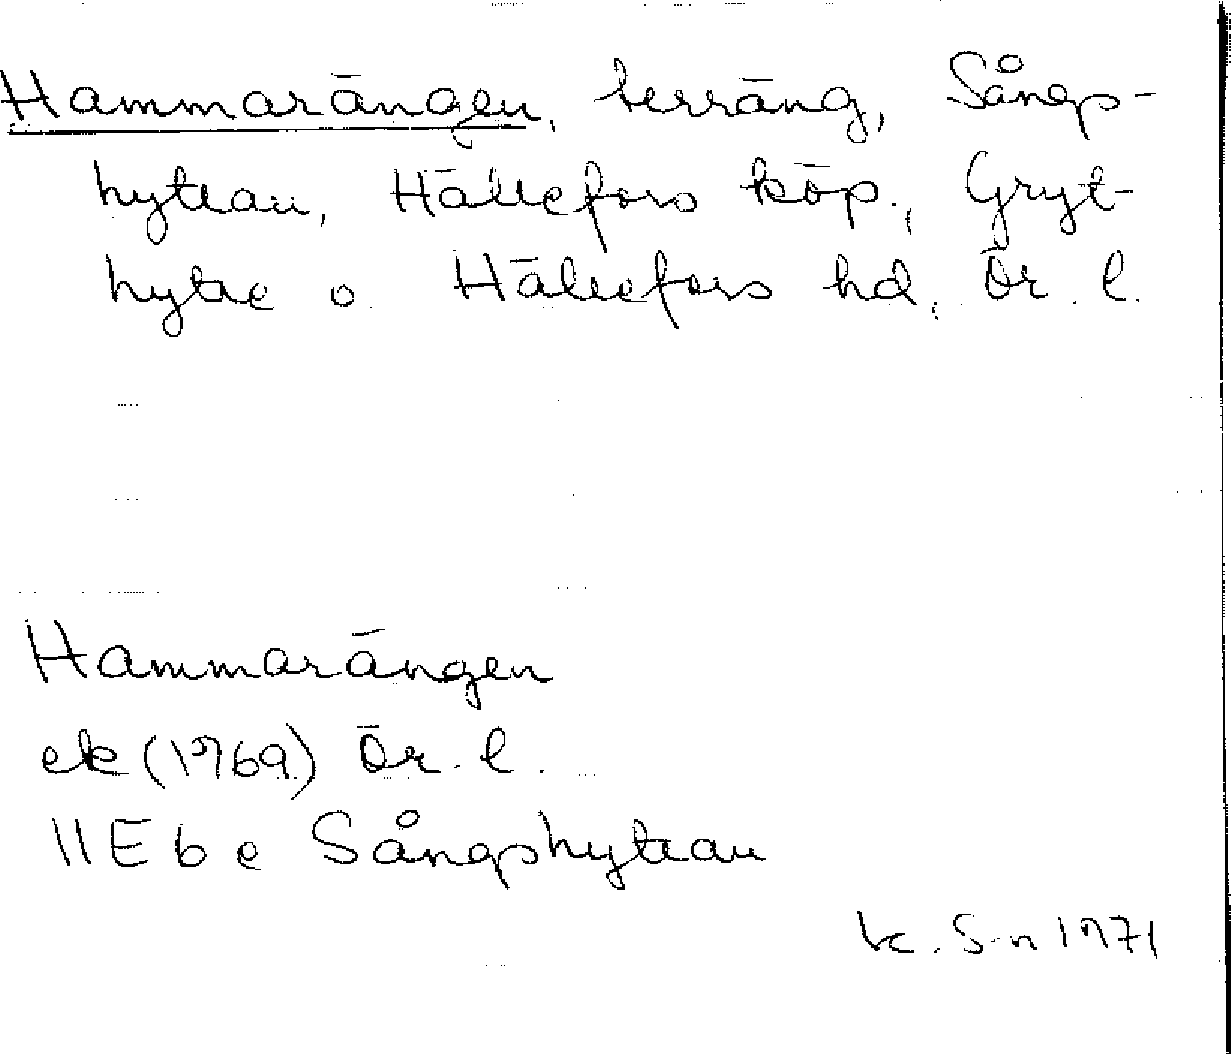 Hammarängen, terräng, Sångs-
hyttan, Hällefors köp., Gryt-
hytte o. Hällefors hd, Ör. l.
Hammarängen
ek (1969) Ör. l.
11E 6 e Sångshyttan
K. S-n 1971